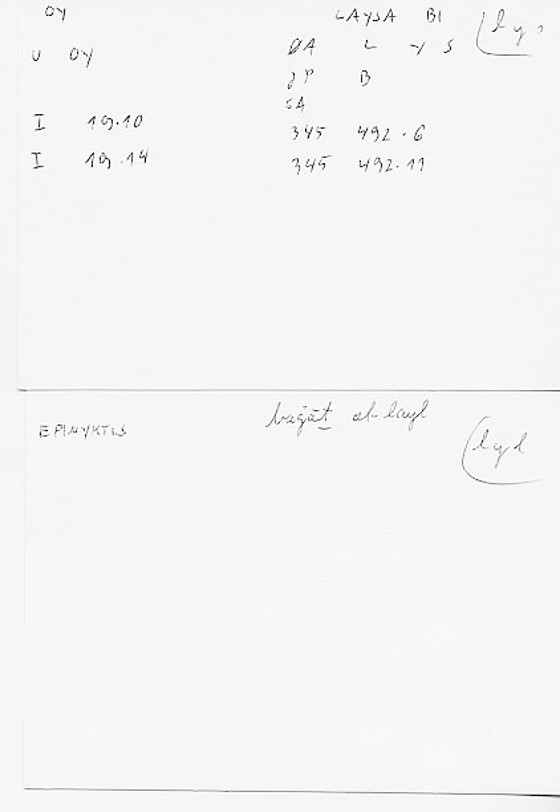 OY LAYSA BI lys
U OY ØA L Y S
JP B
SA
I 19.10 345 492.6
I 19.14 345 492.11
EPINYKTIS al-layl lyl